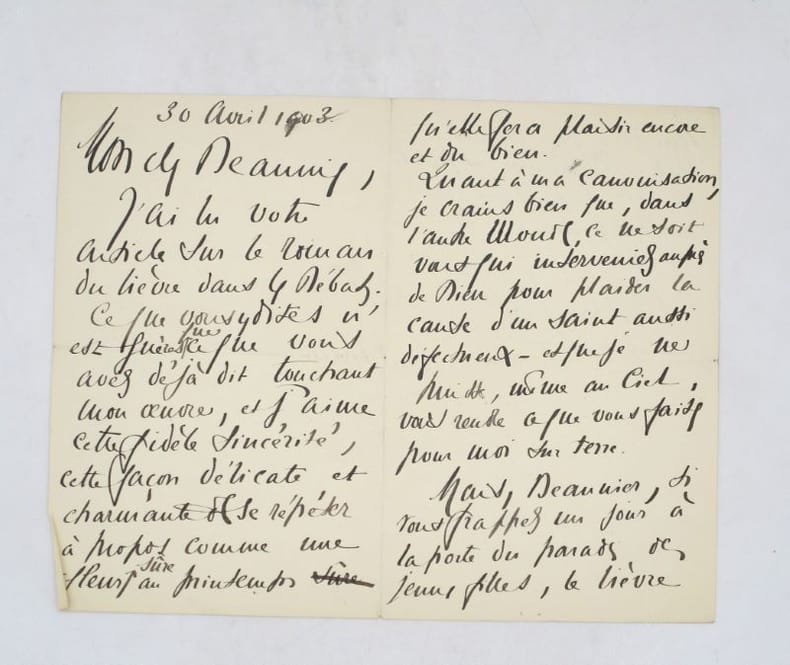 30 Avril 1903.
Mon ch Beaunier,
J'ai lu votre
article sur le roman
du lièvre dans les Débats.
Ce que vous y dites n'
est guère que ce que vous
avez déjà dit touchant
mon œuvre, et j'aime
cette fidèle sincérité,
cette façon délicate et
charmante de se répéter
à propos comme une
fleurs au printemps sûre
qu'elle fera plaisir encore
et du bien.
Quant à ma canonisation,
je crains bien que, dans
l'autre Monde, ce ne soit
vous qui interveniez auprès
de Dieu pour plaider la
cause d'un saint aussi
défectueux – et que je ne
puisse, même au Ciel,
vous rendre ce que vous faites
pour moi sur terre.
Mais, Beaunier, si
vous frappez un jour à
la porte du paradis des
jeunes filles, le lièvre